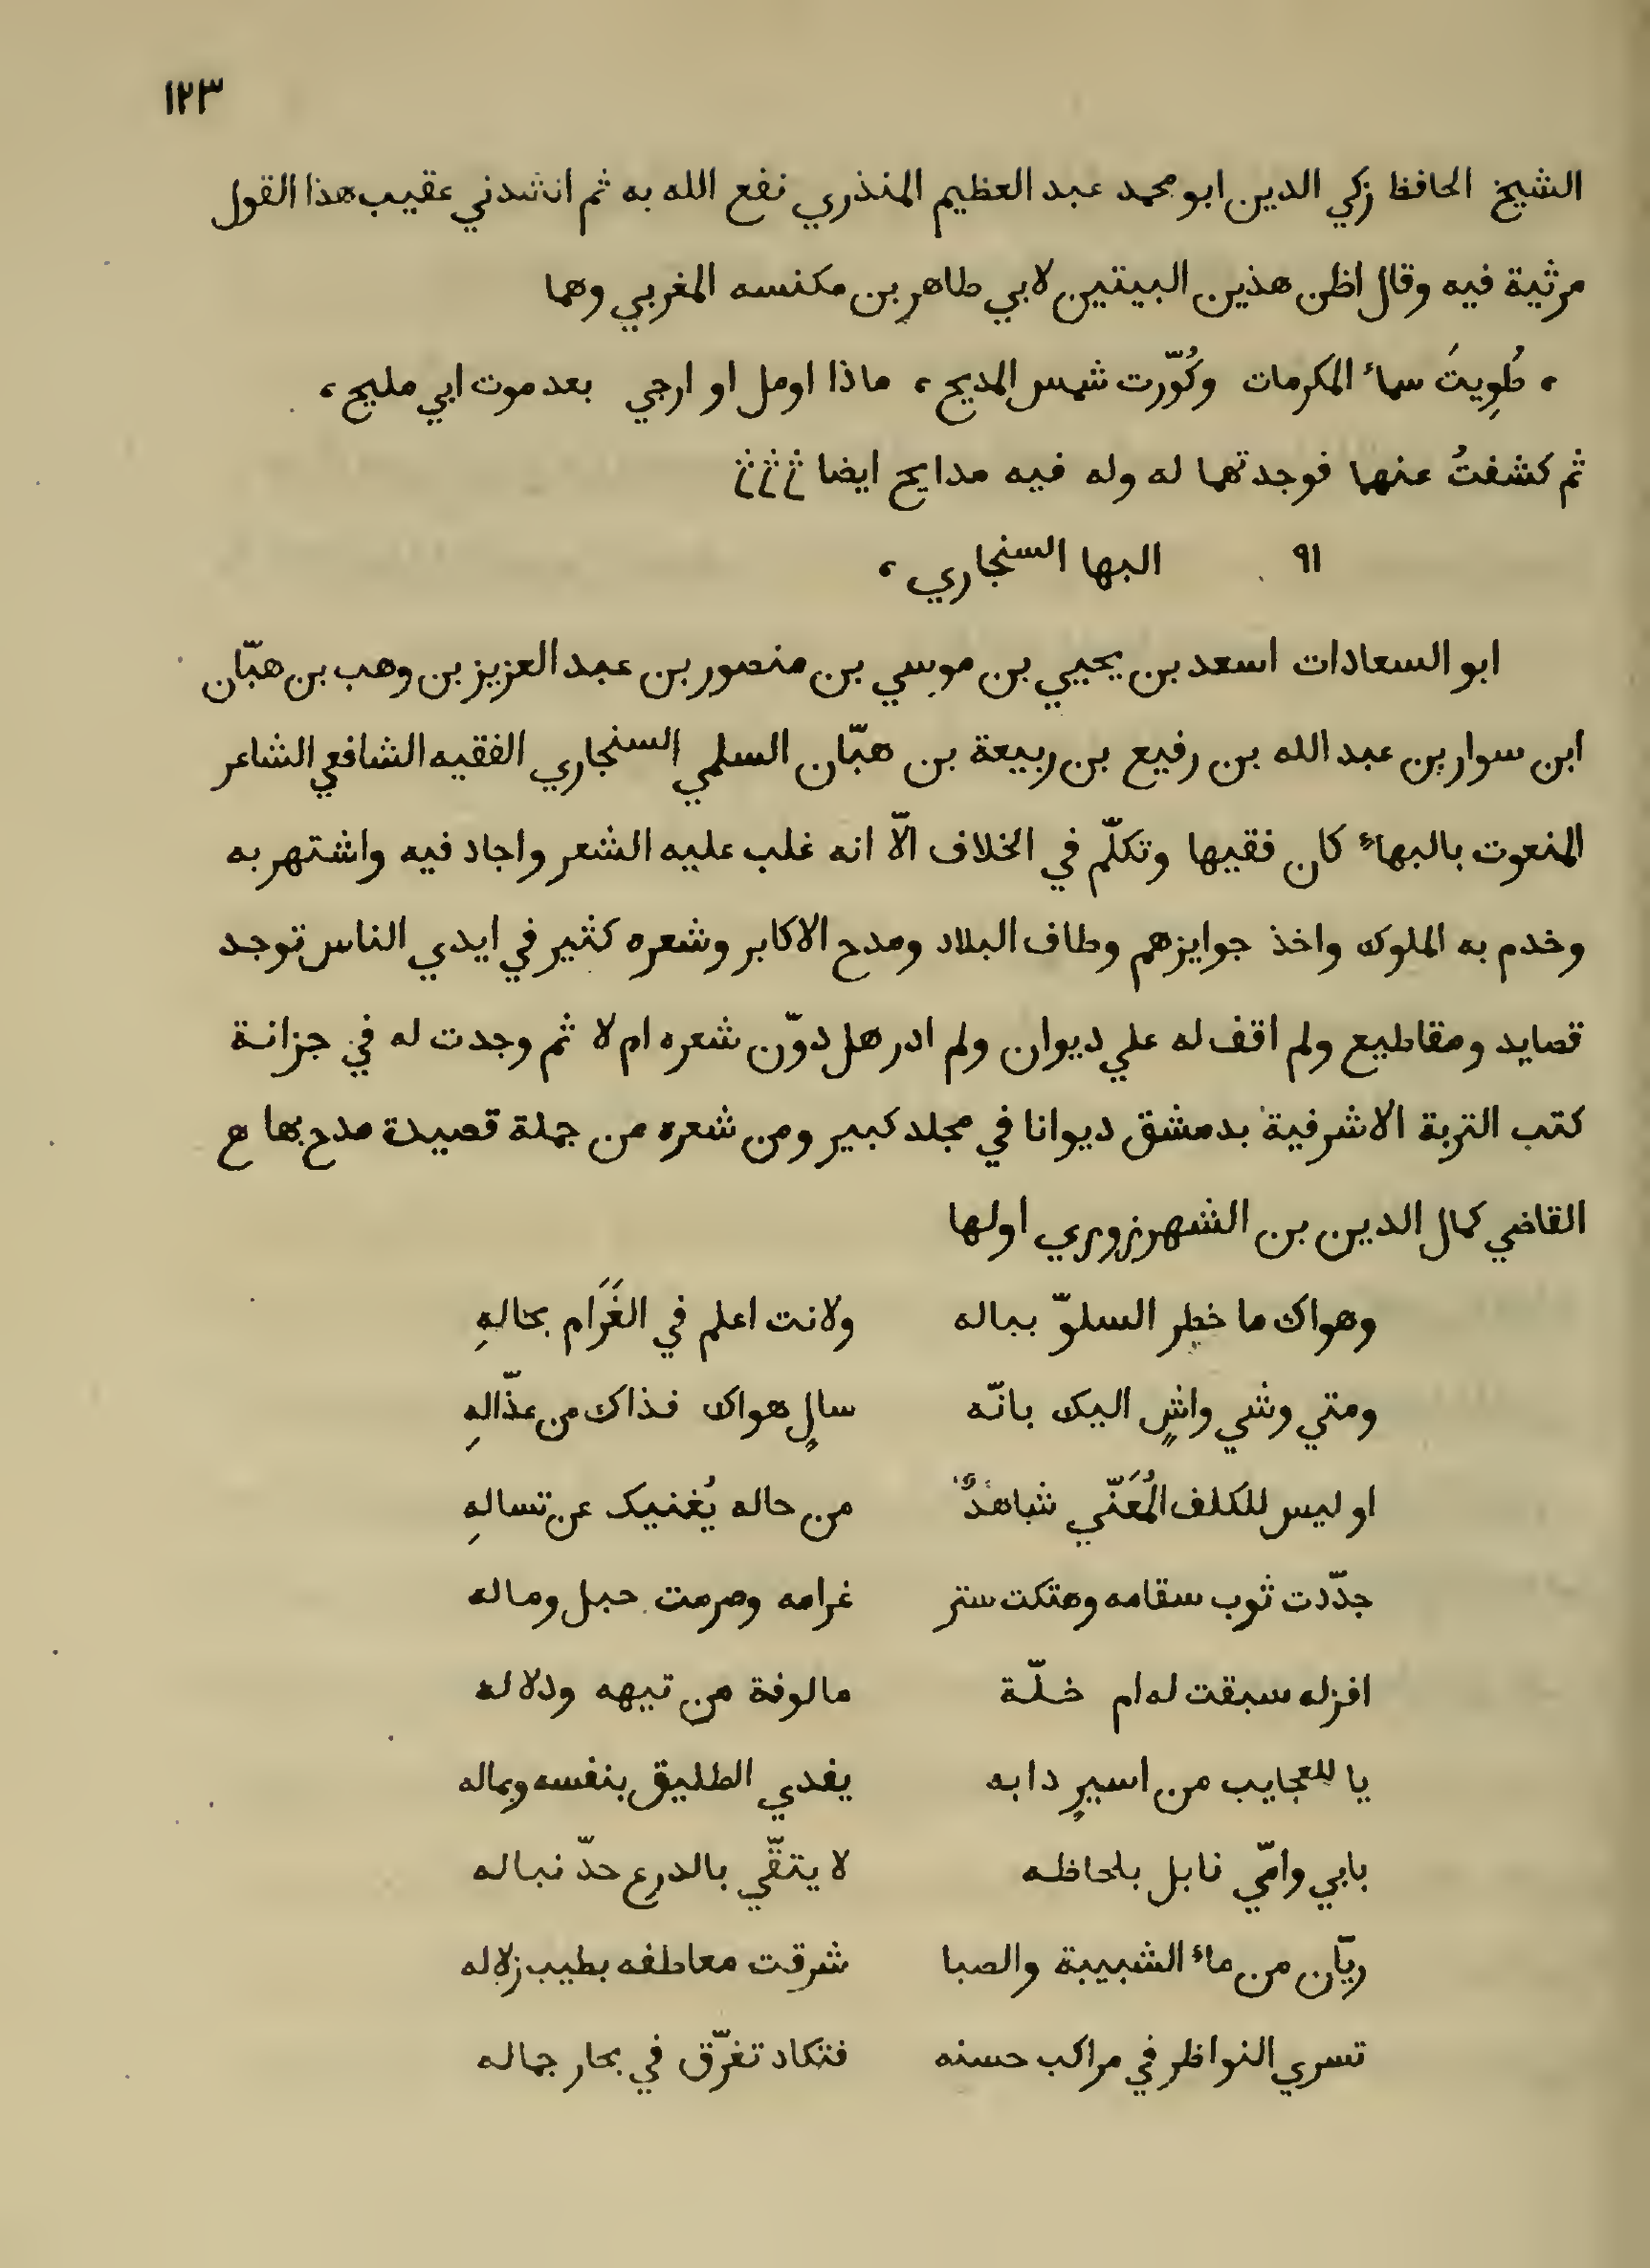 ١٢٣
الشيخ الحافظ زكي الدين ابو محمد عبد العظيم المنذري نفع الله به ثم انشدني عقيب هذا القول
مرثية فيه وقال اظن هذين البيتين لابي طاهر بن مكنسه المغربي وهما
، طُوِيتَ سماء المكرمات وكُوّرت شمس المديح ، ماذا اومل او ارجي بعد موت ابي مليح ،
ثم كشفتُ عنهما فوجدتهما له وله فيه مدايح ايضا
٩١ البها السنجاري ،
ابو السعادات اسعد بن يحيي بن موسي بن منصور بن عبد العزيز بن وهب بن هبّان
ابن سوار بن عبد الله بن رفيع بن ربيعة بن هبّان السلمي السنجاري الفقيه الشافعي الشاعر
المنعوت بالبهاء كان فقيها وتكلّم في الخلاف الّا انه غلب عليه الشعر واجاد فيه واشتهر به
وخدم به الملوك واخذ جوايزهم وطاف البلاد ومدح الاكابر وشعره كثير في ايدي الناس توجد
قصايد ومقاطيع ولم اقف له علي ديوان ولم ادر هل دوّن شعره ام لا ثم وجدت له في جزانة
كتب التربة الاشرفية بدمشق ديوانا في مجلد كبير ومن شعره من جملة قصيدة مدح بها ع
القاضي كمال الدين بن الشهرزوري اولها
وهواك ما خطر السلوّ بباله ولانت اعلم في الغَرَام بحالهِ
ومتي وشي واشٍ اليك بانّه سالٍ هواك فذاك من عذّالهِ
او ليس للكلف المُعَنّي شاهدٌ من حاله يُغنيك عن تسالهِ
جدّدت ثوب سقامه وهتكت ستر غرامه وصرمت حبل وماله
افزله سبقت له ام خلّة مالوفة من تيهه ودلاله
يا للعجايب من اسيرٍ دابه يفدي الطليق بنفسه وبماله
بابي وامّي نابل بلحاظه لا يتقّي بالدرع حدّ نباله
ريّان من ماء الشبيبة والصبا شرقت معاطفه بطيب زلاله
تسري النواظر في مراكب حسنه فتكاد تغرّق في بحار جماله